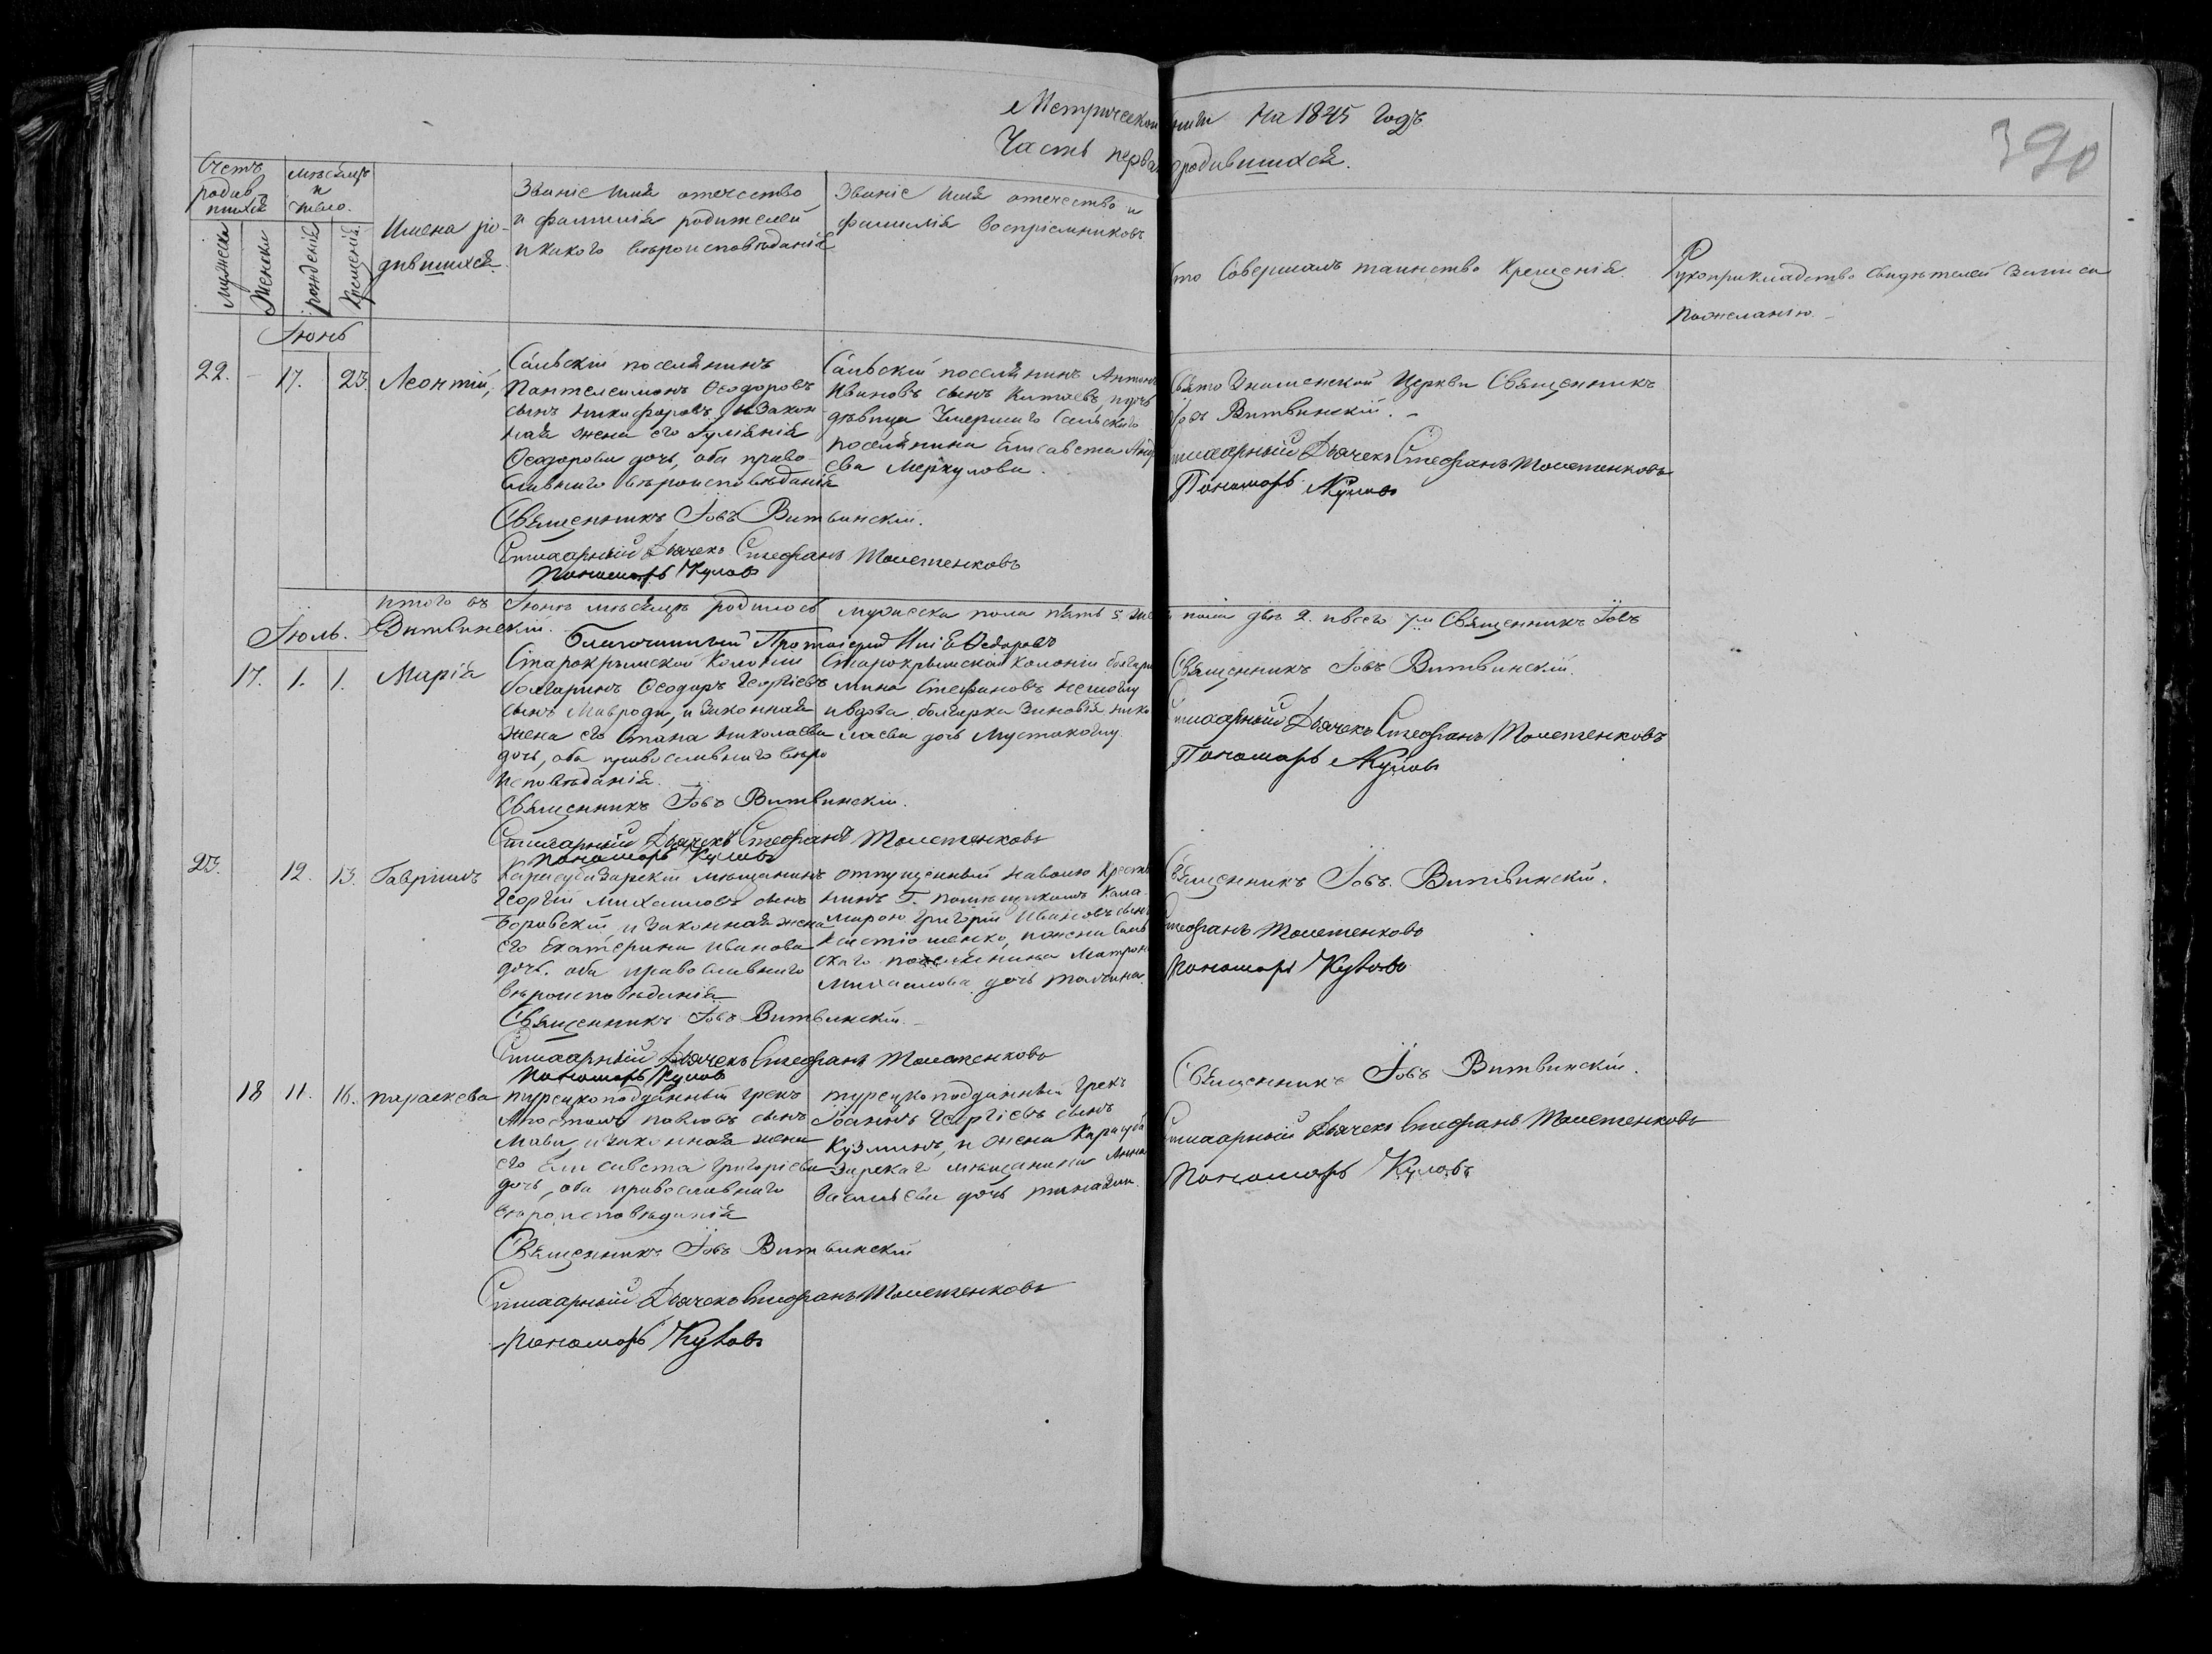 Метрической книги на 1845 годъ
Часть первая о родившихся.
390
Счетъ родившихся
Мужеска
Женска
Мѣсяцъ и число.
рожденія
Крещенія
Имена родившихся.
Званіе имя отечество
и фамилія родителей
и какого вѣроисповѣданія
Званіе имя отечество и
фамилія воспріемниковъ
Кто Совершалъ таинство Крещенія
Рукоприкладство свидѣтелей записи
по желанію.
Іюнь
22. - 17. 23. Леонтій,
Сальскій поселянинъ
Пантелеимонъ Ѳеодоровъ
сынъ Никифоровъ, и закон
ная жена его Іуліанія
Ѳеодорова дочь, оба право
славнаго вѣроисповѣданія
Священникъ Іовъ Витвинскій.
Стихарный Дьячекъ Стефанъ
Пономарь
Сальскій поселянинъ Антонъ
Ивановъ сынъ Китаевъ,
дѣвица Умершаго Сальскаго
поселянина Елисавета
Меркулова.
Свято Знаменской Церкви Священникъ
Іовъ Витвинскій.
Стихарный Дьячекъ Стефанъ
Пономарь
Итого въ Іюнѣ мѣсяцѣ родилось мужеска пола пять 5. женска пола двѣ 2. и всего 7ми Священникъ Іовъ
Витвинскій.
Благочинный Протоіерей
Іюль.
17. 1. 1. Марія
Старокрымской Колоніи
болгаринъ Ѳеодоръ Георгіевъ
сынъ Мавроди, и законная
жена его Стана Николаева
дочь, оба православнаго вѣро
исповѣданія.
Священникъ Іовъ Витвинскій.
Стихарный Дьячекъ Стефанъ
Пономарь
Старокрымской колоніи болгаринъ
Стефановъ
и вдова болгарка Зиновія Нико
лаева дочь
Священникъ Іовъ Витвинскій.
Стихарный Дьячекъ Стефанъ
Пономарь
23. 12. 13. Гавріилъ
Карасубазарскій мѣщанинъ
Георгій Михаиловъ сынъ
Боровскій и законная жена
его Екатерина Иванова
дочь. оба православнаго
вѣроисповѣданія
Священникъ Іовъ Витвинскій.
Стихарный Дьячекъ Стефанъ
Пономарь
отпущенный на волю Крестья
нинъ Г. помѣщикомъ Кала
Григорій Ивановъ сынъ
поселянина Матрона
Михаилова дочь
Священникъ Іовъ Витвинскій.
Стефанъ
Пономарь
18 11. 16. Параскева
турецкоподданный грекъ
Апостолъ Павловъ сынъ
и законная жена
его Елисавета Григоріева
дочь, оба православнаго
вѣроисповѣданія
Священникъ Іовъ Витвинскій
Стихарный Дьячекъ Стефанъ
Пономарь
турецкоподданный Грекъ
Іоаннъ Георгіевъ сынъ
Кузминъ, и жена Карасуба
зарскаго мѣщанина Анна
Васильева дочь
Священникъ Іовъ Витвинскій.
Стихарный Дьячекъ Стефанъ
Пономарь